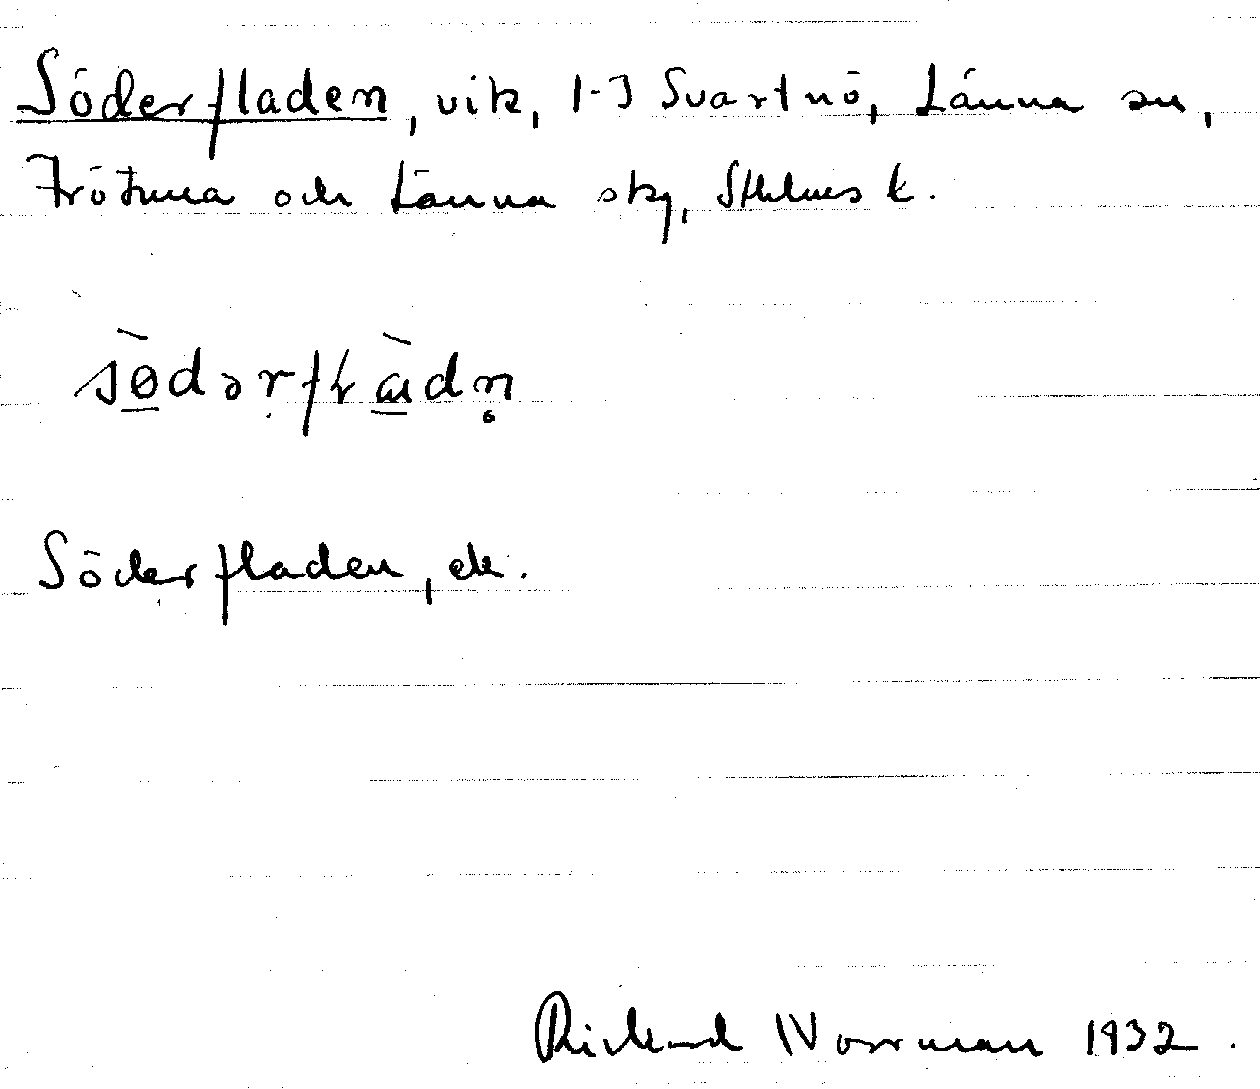 Söderfladen, vik, 1-3 Svartnö, Länna sn,
Frötuna och Länna sky, Sthlms k.
sø̀dərflɑ̀dn̥
Söderfladen, ek.
Rickard Norrman 1932.